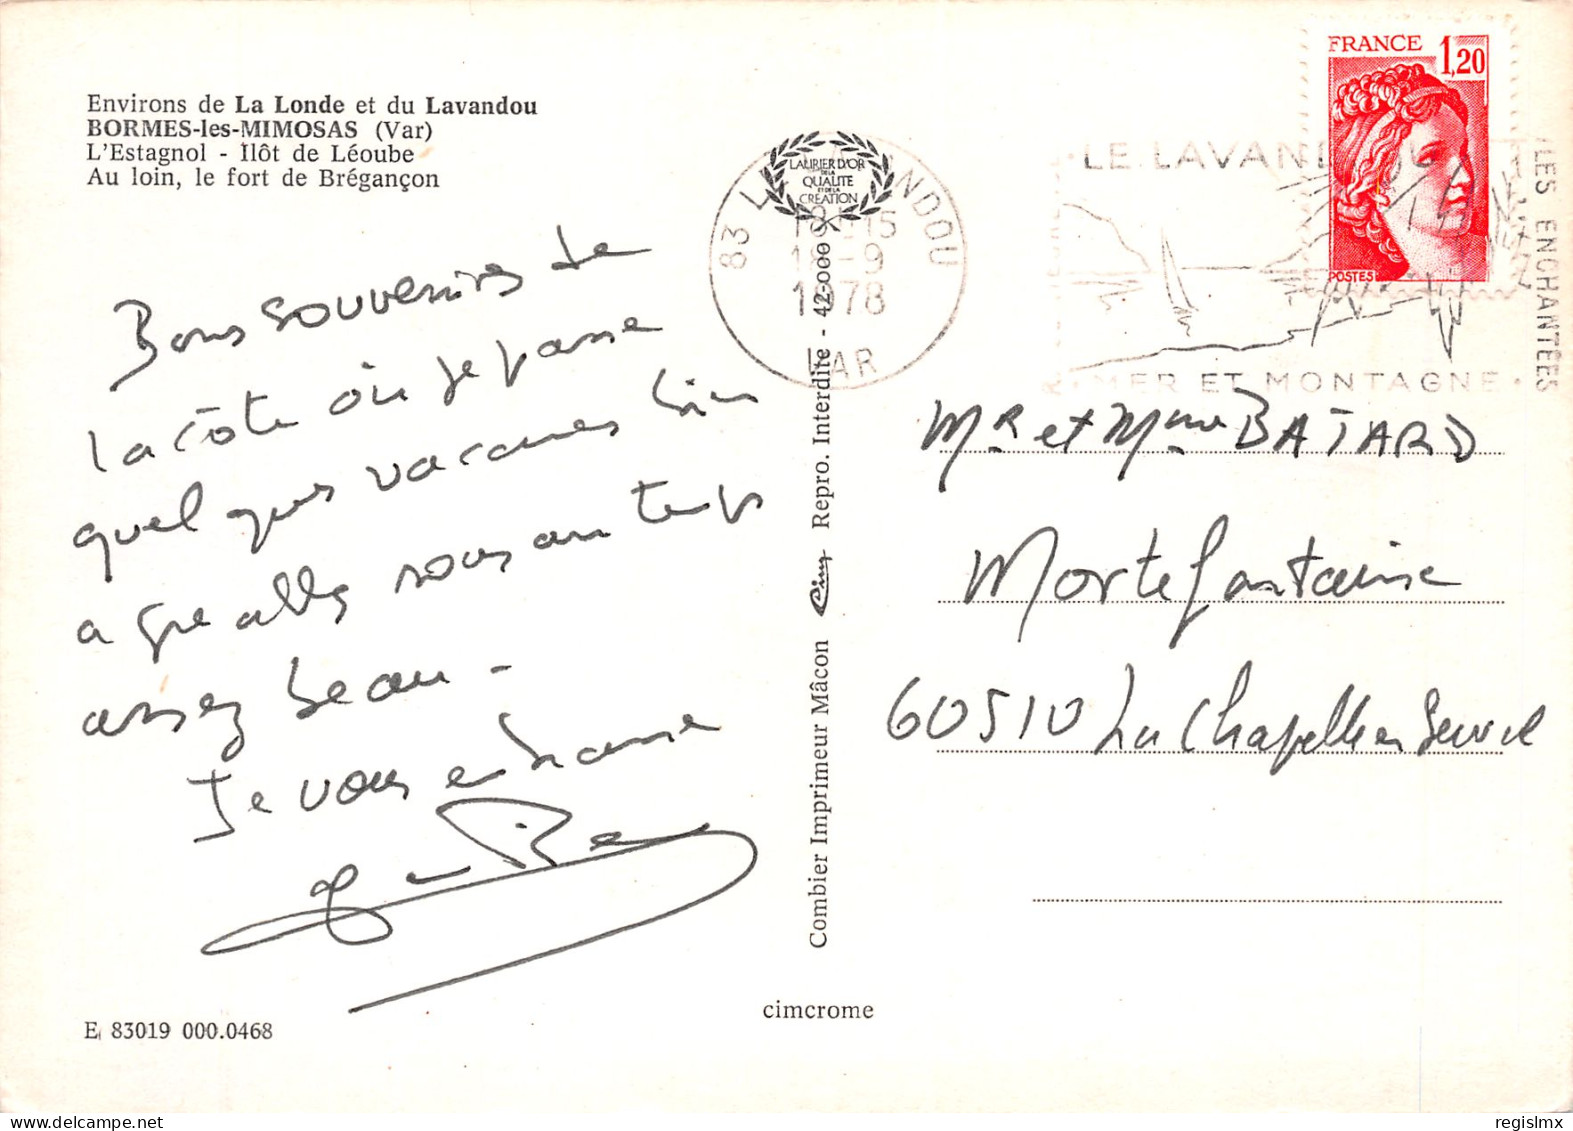 Environs de La Londe et du Lavandou
BORMES-les-MIMOSAS (Var)
L'Estagnol - Ilôt de Léoube
Au loin, le fort de Brégançon
Bons souvenirs de
la côte où je passe
quelques vacances bien
agréables sous un temps
assez beau -
Je vous embrasse
E 83019 000.0468
LAURIER D'OR
DE LA
QUALITE
ET DE LA
CREATION
Combier Imprimeur Mâcon Cim Repro. Interdite - 42-000
cimcrome
83 LE LAVANDOU
18H15
18-9
1978
VAR
LE LAVANDOU
MER ET MONTAGNE
ILES ENCHANTÉES
FRANCE 1,20
POSTES
Mr et Mme BATARD
Mortefontaine
60510 La Chapelle en Serval
regislmx